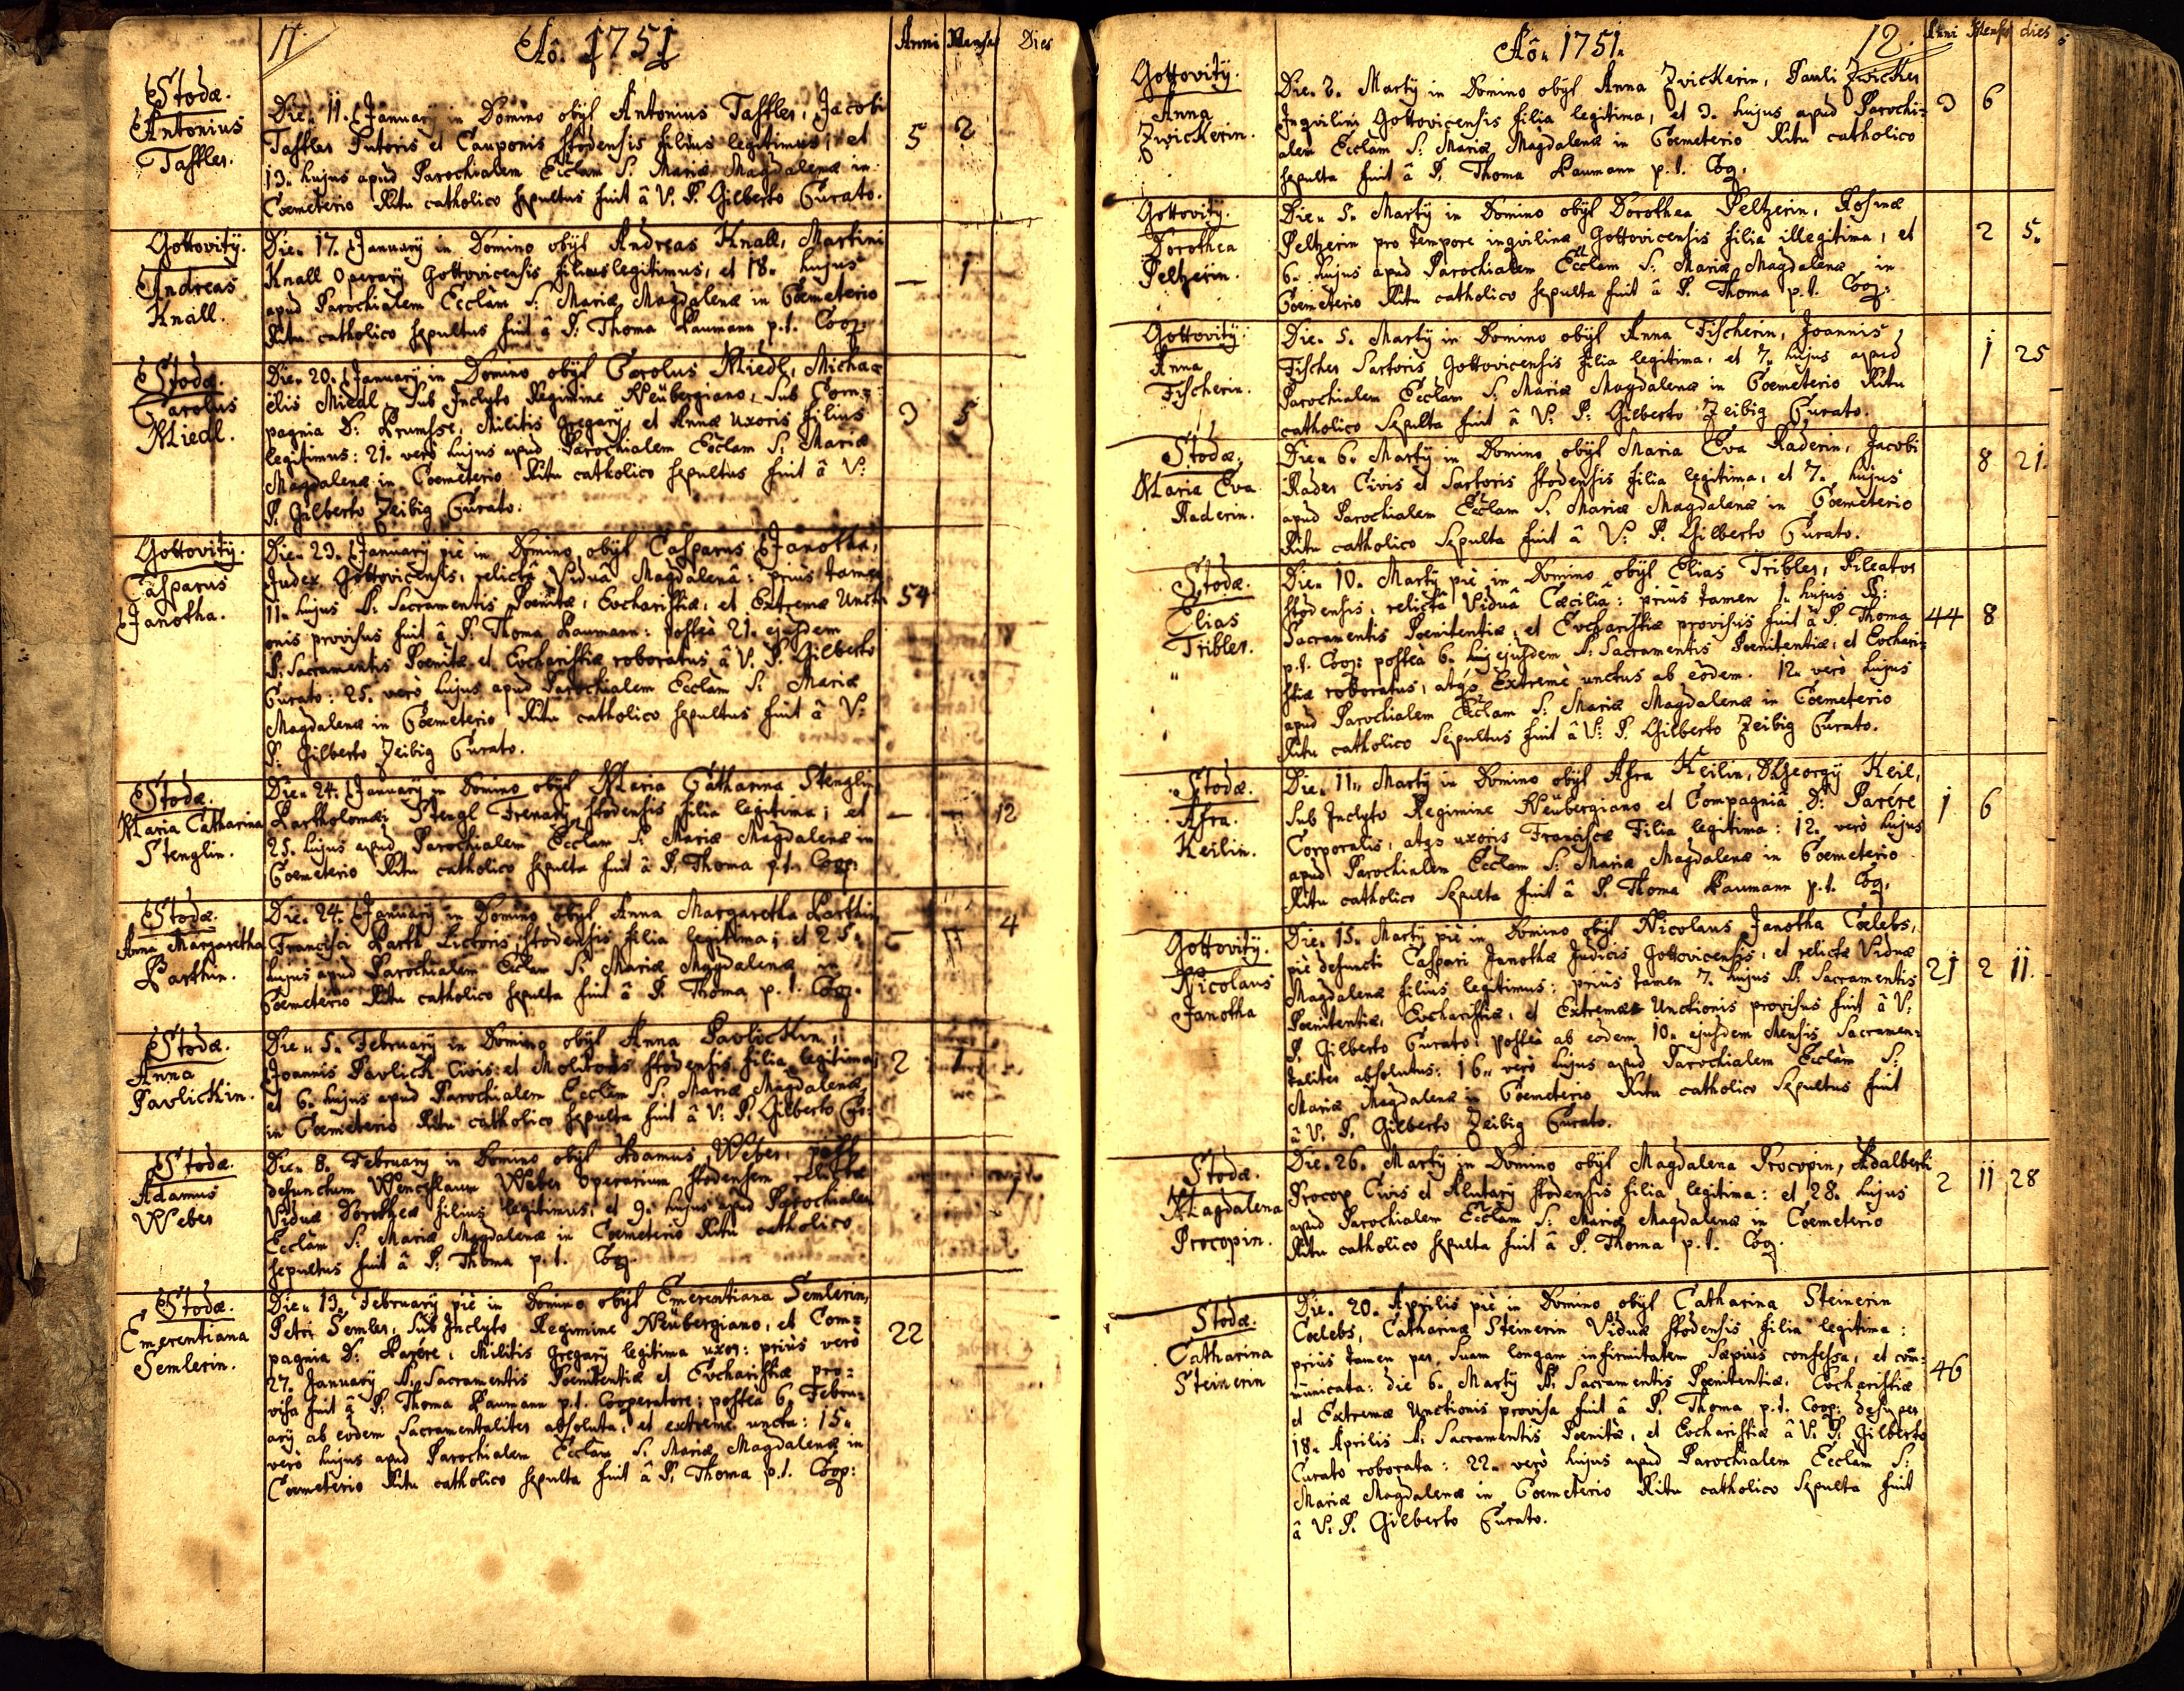 11.
Aô. 1751
Anni Menses Dies
Stodæ.
Antonius
Taffler.
Die. 11. January in Domino obyt Antonius Taffler, Jacobi
Taffler Sutoris et Cauponis Stodensis filius legitimus, et
13. hujus apud Parochialem Ecclam S. Mariæ Magdalenæ in
Coemeterio Ritu catholico sepultus fuit â V. P. Gilberto Curato.
5 2
Gottovity.
Andreas
Knall.
Die. 17. January in Domino obyt Andreas Knall, Martini
Knall Operary Gottovicensis filius legitimus, et 18. hujus
apud Parochialem Ecclam S: Mariæ Magdalenæ in Coemeterio
Ritu catholico sepultus fuit â P. Thoma Baumann p.t. Coop:
— 1
Stodæ.
Carolus
Miedl.
Die. 20. January in Domino obyt Carolus Miedl, Micha=
elis Miedl, sub Inclyto Regimine Neübergiano, sub Com=
pagnia D: Brumsse, Militis gregary, et Annæ uxoris filius
legitimus: 21. verò hujus apud Parochialem Ecclam S: Mariæ
Magdalenæ in Coemeterio Ritu catholico sepultus fuit â V:
P. Gilberto Zeibig Curato.
3 5
Gottovity.
Casparus
Janotha.
Die. 23. January piè in Domino obyt Casparus Janotha,
Judex Gottovicensis, relictâ Viduâ Magdalenâ: priùs tamen
11. hujus SS. Sacramentis Poenitæ, Eucharistiæ, et Extremæ Uncti=
onis provisus fuit â P. Thoma Baumann: posteà 21. ejusdem
SS: Sacramentis Poenitæ et Eucharistiæ roboratus â V. P. Gilberto
Curato: 25. verò hujus apud Parochialem Ecclam S: Mariæ
Magdalenæ in Coemeterio Ritu catholico sepultus fuit â V:
P. Gilberto Zeibig Curato.
54
Stodæ.
Maria Catharina
Stenglin.
Die. 24. January in Domino obyt Maria Catharina Stenglin
Bartholomæi Stengl Frenary Stodensis filia legitima; et
25. hujus apud Parochialem Ecclam S. Mariæ Magdalenæ in
Coemeterio Ritu catholico sepulta fuit â P. Thoma p.t. Coop:
— — 12
Stodæ.
Anna Margaretha
Barthin.
Die. 24. January in Domino obyt Anna Margaretha Barthin
Francisci Barth Lictoris Stodensis filia legitima; et 25.
hujus apud Parochialem Ecclam S. Mariæ Magdalenæ in
Coemeterio Ritu catholico sepulta fuit â P. Thoma p.t. Coop.
4
Stodæ.
Anna
Pavlickin.
Die. 5. February in Domino obyt Anna Pavlickin,
Joannis Pavlick Civis et Molitoris Stodensis filia legitima;
et 6. hujus apud Parochialem Ecclam S: Mariæ Magdalenæ
in Coemeterio Ritu catholico sepulta fuit â V: P. Gilberto Cu:
2 1
Stodæ.
Adamus
Weber
Die. 8. February in Domino obyt Adamus Weber, post
defunctum Wenceslaum Weber Operarium Stodensem relictæ
Viduæ Dorotheæ filius legitimus, et 9. hujus apud Parochialem
Ecclam S: Mariæ Magdalenæ in Coemeterio Ritu catholico
sepultus fuit â P: Thoma p.t. Coop.
Stodæ.
Emerentiana
Semlerin.
Die. 13. February piè in Domino obyt Emerentiana Semlerin,
Petri Semler, sub Inclyto Regimine Neübergiano, et Com=
pagnia D: Parere, Militis gregary legitima uxor: priùs verò
27. January SS. Sacramentis Poenitentiæ et Eucharistiæ pro=
visa fuit â P: Thoma Baumann p.t. Cooperatore; posteà 6. Febru=
ary ab eodem Sacramentaliter absoluta, et extremè uncta: 15.
verò hujus apud Parochialem Ecclam S. Mariæ Magdalenæ in
Coemeterio Ritu catholico sepulta fuit â P. Thoma p.t. Coop:
22
Aô. 1751.
12.
Anni Menses dies
Gottovity.
Anna
Zwickerin.
Die. 2. Marty in Domino obyt Anna Zwickerin, Pauli Zwicker
Inqvilini Gottovicensis filia legitima, et 3. hujus apud Parochi=
alem Ecclam S: Mariæ Magdalenæ in Coemeterio Ritu catholico
sepulta fuit â P. Thoma Baumann p.t. Coop.
3 6
Gottovity.
Dorothea
Peltzerin.
Die. 5. Marty in Domino obyt Dorothea Peltzerin, Rosinæ
Peltzerin pro tempore inqvilinæ Gottovicensis filia illegitima, et
6. hujus apud Parochialem Ecclam S: Mariæ Magdalenæ in
Coemeterio Ritu catholico sepulta fuit â P. Thoma p.t. Coop:
2 5.
Gottovity:
Anna
Fischerin.
Die. 5. Marty in Domino obyt Anna Fischerin, Joannis
Fischer Sartoris Gottovicensis filia legitima, et 7. hujus apud
Parochialem Ecclam S: Mariæ Magdalenæ in Coemeterio Ritu
catholico sepulta fuit â V: P: Gilberto Zeibig Curato.
1 25
Stodæ.
Maria Eva
Raderin.
Die. 6. Marty in Domino obyt Maria Eva Raderin, Jacobi
Rader Civis et Sartoris Stodensis filia legitima, et 7. hujus
apud Parochialem Ecclam S. Mariæ Magdalenæ in Coemeterio
Ritu catholico sepulta fuit â V: P. Gilberto Curato.
8 21.
Stodæ.
Elias
Tribler.
Die. 10. Marty piè in Domino obyt Elias Tribler, Pileator
Stodensis, relictâ Viduâ Cæciliâ: priùs tamen 1. hujus SS:
Sacramentis Poenitentiæ, et Eucharistiæ provisus fuit â P. Thoma
p.t. Coop: posteà 6. huj ejusdem SS: Sacramentis Poenitentiæ, et Euchari=
stiæ roboratus, atqs Extremè unctus ab eòdem. 12. verò hujus
apud Parochialem Ecclam S: Mariæ Magdalenæ in Coemeterio
Ritu catholico sepultus fuit â V: P. Gilberto Zeibig Curato.
44 8
Stodæ.
Afra.
Keilin.
Die. 11. Marty in Domino obyt Afra Keilin, D. Georgy Keil,
sub Inclyto Regimine Neübergiano et Compagniâ D: Parére
Corporalis, atqs uxoris Franciscæ Filia legitima: 12. verò hujus
apud Parochialem Ecclam S: Mariæ Magdalenæ in Coemeterio
Ritu catholico sepulta fuit â P. Thoma Baumann p.t. Coop.
1 6
Gottovity.
Nicolaus
Janotha
Die. 15. Marty piè in Domino obyt Nicolaus Janotha Cœlebs,
piè defuncti Caspari Janothæ Judicis Gottovicensis, et relictæ Viduæ
Magdalenæ filius legitimus: priùs tamen 7. hujus SS. Sacramentis
Poenitentiæ, Eucharistiæ, et Extremæ Unctionis provisus fuit â V.
P. Gilberto Curato: posteà ab eodem 10. ejusdem Mensis Sacramen=
taliter absolutus: 16. verò hujus apud Parochialem Ecclam S:
Mariæ Magdalenæ in Coemeterio Ritu catholico sepultus fuit
â V. P. Gilberto Zeibig Curato.
21 2 11.
Stodæ.
Magdalena
Procopin.
Die. 26. Marty in Domino obyt Magdalena Procopin, Adalberti
Procop Civis et Alutary Stodensis filia legitima: et 28. hujus
apud Parochialem Ecclam S: Mariæ Magdalenæ in Coemeterio
Ritu catholico sepulta fuit â P. Thoma p.t. Coop.
2 11 28
Stodæ.
Catharina
Steinerin
Die. 20. Aprilis piè in Domino obyt Catharina Steinerin
Cœlebs, Catharinæ Steinerin Viduæ Stodensis filia legitima:
priùs tamen per suam longam infirmitatem sæpiùs confessa, et com=
municata: die 6. Marty SS. Sacramentis Poenitentiæ, Eucharistiæ
et Extremæ Unctionis provisa fuit â P. Thoma p.t. Coop: desuper
18. Aprilis SS: Sacramentis Poenitæ, et Eucharistiæ â V: P: Gilberto
Curato roborata: 22. verò hujus apud Parochialem Ecclam S:
Mariæ Magdalenæ in Coemeterio Ritu catholico sepulta fuit
â V: P. Gilberto Curato.
46